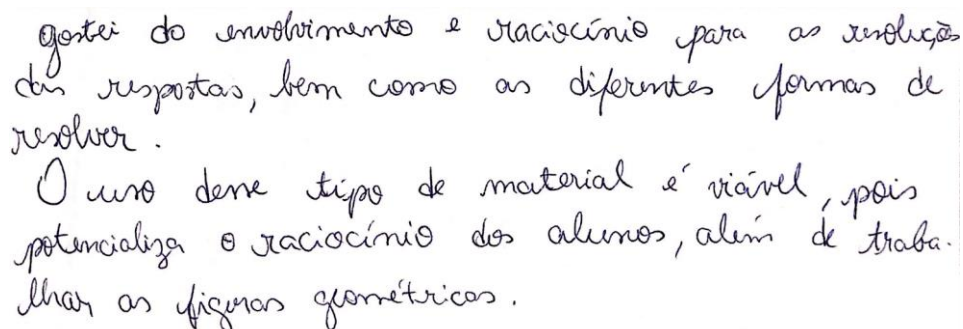 gostei do envolvimento e raciocínio para as resoluções
das respostas, bem como as diferentes formas de
resolver.
O uso desse tipo de material é viável, pois
potencializa o raciocínio dos alunos, além de traba-
lhar as figuras geométricas.